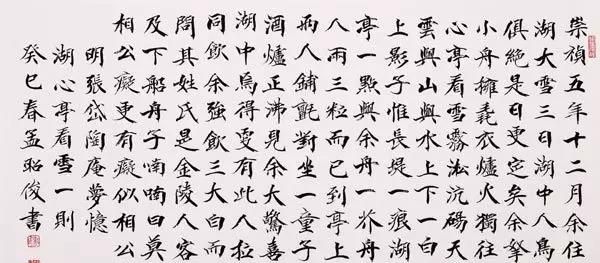 崇禎五年十二月余住
湖大雪三日湖中人鳥
俱絕是日更定矣余拏
小舟擁毳衣爐火獨往
心亭看雪霧淞沆碭天
雲與山與水上下一白
上影子惟長堤一痕湖
亭一點與余舟一芥舟
人兩三粒而已到亭上
兩人鋪氈對坐一童子
酒爐正沸見余大驚喜
湖中焉得更有此人拉
同飲余強飲三大白而
問其姓氏是金陵人客
及下船舟子喃喃曰莫
相公癡更有癡似相公
明張岱陶庵夢憶
湖心亭看雪一則
癸巳春孟昭俊書